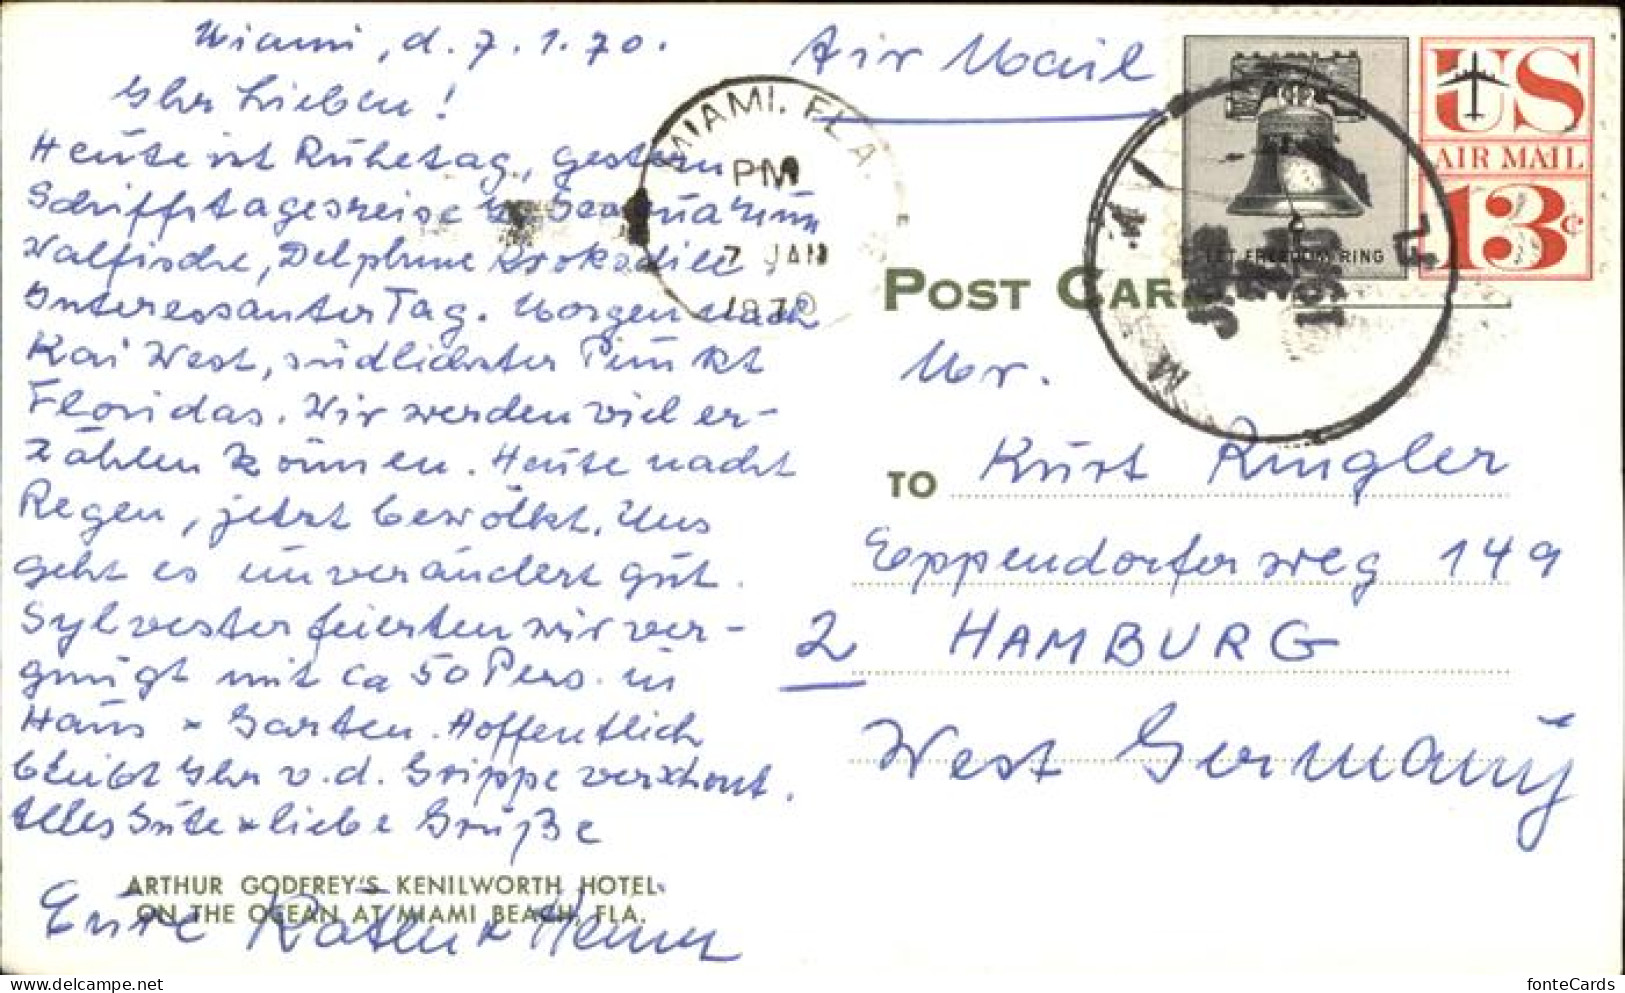 Miami, d. 7.1.70.
Ihr Lieben!
Heute ist Ruhetag, gestern
Schiffstagesreise Seaquarium
Walfische, Delphine Krokodille,
Interessanter Tag. Morgen nach
Kai West, südlichster Punkt
Floridas. Wir werden viel er-
zählen können. Heute nacht
Regen, jetzt bewölkt. Uns
geht es unverändert gut.
Sylvester feierten wir ver-
gnügt mit ca 50 Pers. in
Haus + Garten. Hoffentlich
bleibt Ihr v. d. Grippe verschont.
Alles Gute + liebe Grüße
Eure Käthe + Henn
ARTHUR GODFREY'S KENILWORTH HOTEL
ON THE OCEAN AT MIAMI BEACH, FLA.
Air Mail
MIAMI, FLA.
PM
7 JAN
1970
LET FREEDOM RING
US
AIR MAIL
13c
POST CARD
Mr.
TO Kurt Ringler
Eppendorferweg 149
2 HAMBURG
West Germany
fonteCards